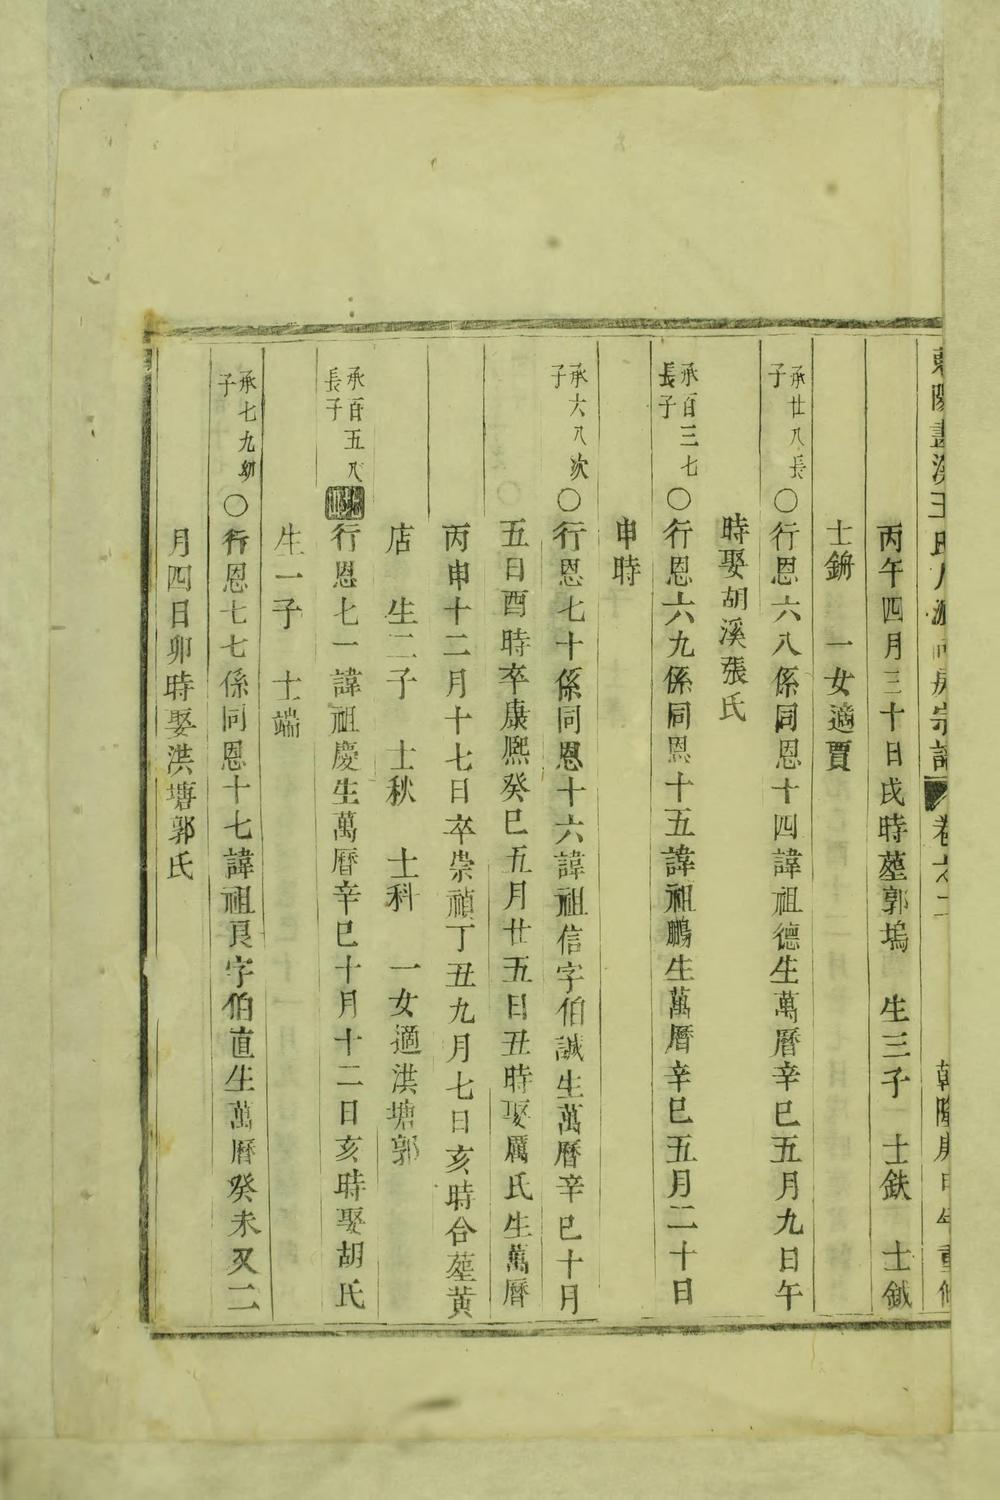 宗譜 卷 乾隆庚申年重修
丙午四月三十日戌時塟郭塢 生三子 士鈇 士鉞
士鈵 一女適賈
承廿八長子○行恩六八係同恩十四諱祖德生萬曆辛巳五月九日午
時娶胡溪張氏
承百三七長子○行恩六九係同恩十五諱祖鵬生萬曆辛巳五月二十日
申時
承六八次子○行恩七十係同恩十六諱祖信字伯誠生萬曆辛巳十月
五日酉時卒康熙癸巳五月廿五日丑時娶厲氏生萬曆
丙申十二月十七日卒崇禎丁丑九月七日亥時合塟黃
店 生二子 士秋 士科 一女適洪塘郭
承百五八長子 行恩七一諱祖慶生萬曆辛巳十月十二日亥時娶胡氏
生一子 士端
承七九幼子○行恩七七係同恩十七諱祖良字伯直生萬曆癸未又二
月四日卯時娶洪塘郭氏